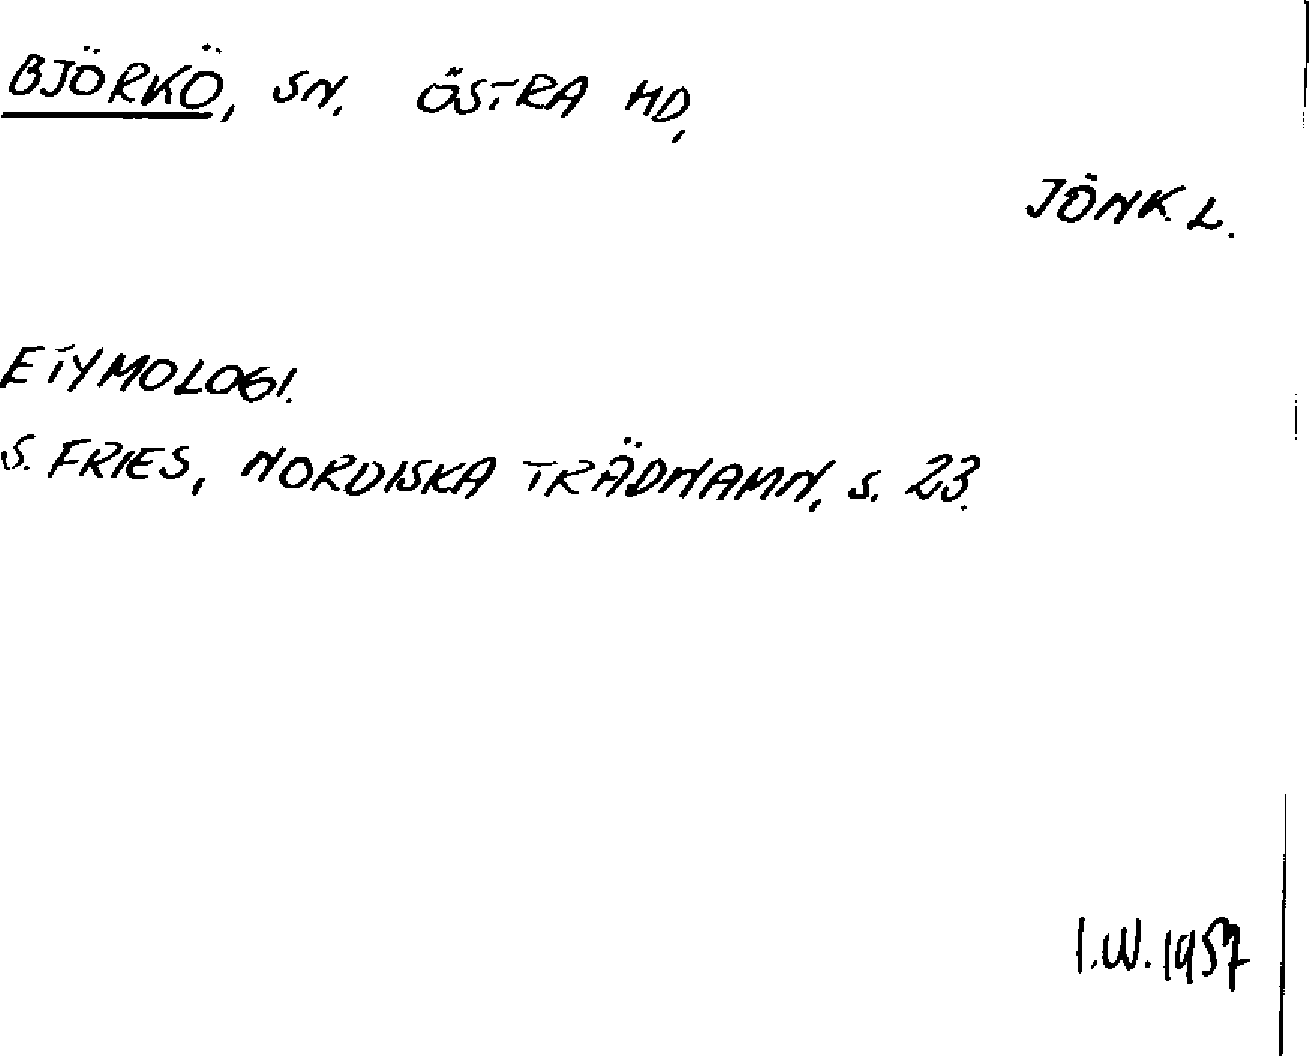 BJÖRKÖ, SN. ÖSTRA HD,
JÖNK. L.
ETYMOLOGI.
S. FRIES, NORDISKA TRÄDNAMN, S. 23.
I.W. 1957